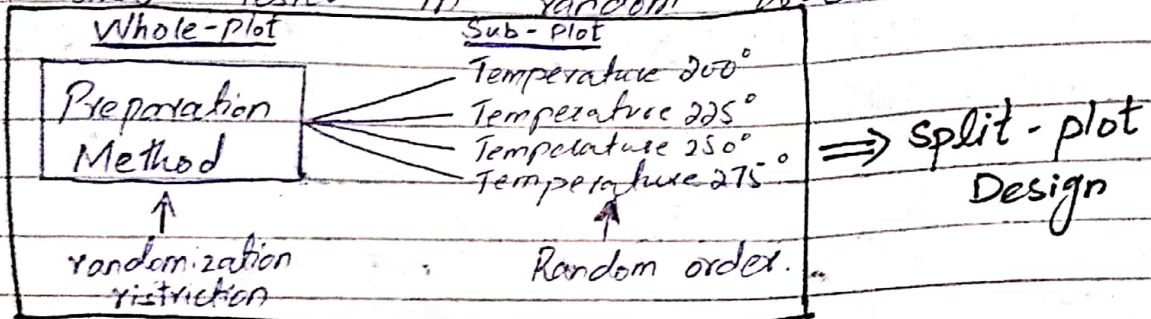 Whole-plot Sub-plot
Preparation Method
Temperature 200°
Temperature 225°
Temperature 250°
Temperature 275°
⇒ split-plot Design
randomization ristriction
Random order.